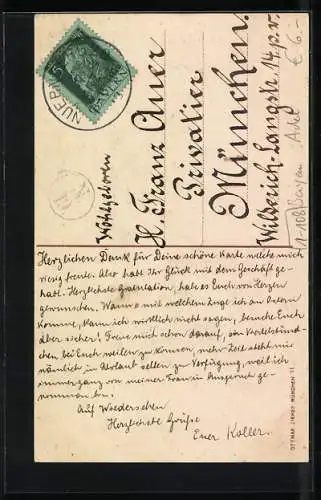 NUERNB
BAYERN
5
Wohlgeboren
H. Franz Auer
Privatier
München.
Wilderich-Langstr. 14 p.r.
€ 6.-
Adel
Bayern
Herzlichen Dank für Deine schöne Karte welche mich
riesig freute. Also habt Ihr Glück mit dem Geschäft ge-
habt. Herzlichste Gratulation, habe es Euch von Herzen
gewunschen. Wann & mit welchem Zuge ich an Ostern
komme, kann ich wirklich nicht sagen, besuche Euch
aber sicher! Freue mich schon darauf, ein Viertelstünd-
chen bei Euch weilen zu können, mehr Zeit steht mir
nämlich im Urlaub selten zu Verfügung, weil ich
immer ganz von meiner Frau in Anspruch ge-
nommen bin.
Auf Wiedersehen
Herzlichste Grüße
Euer Koller.
OTTMAR ZIEHER, MÜNCHEN